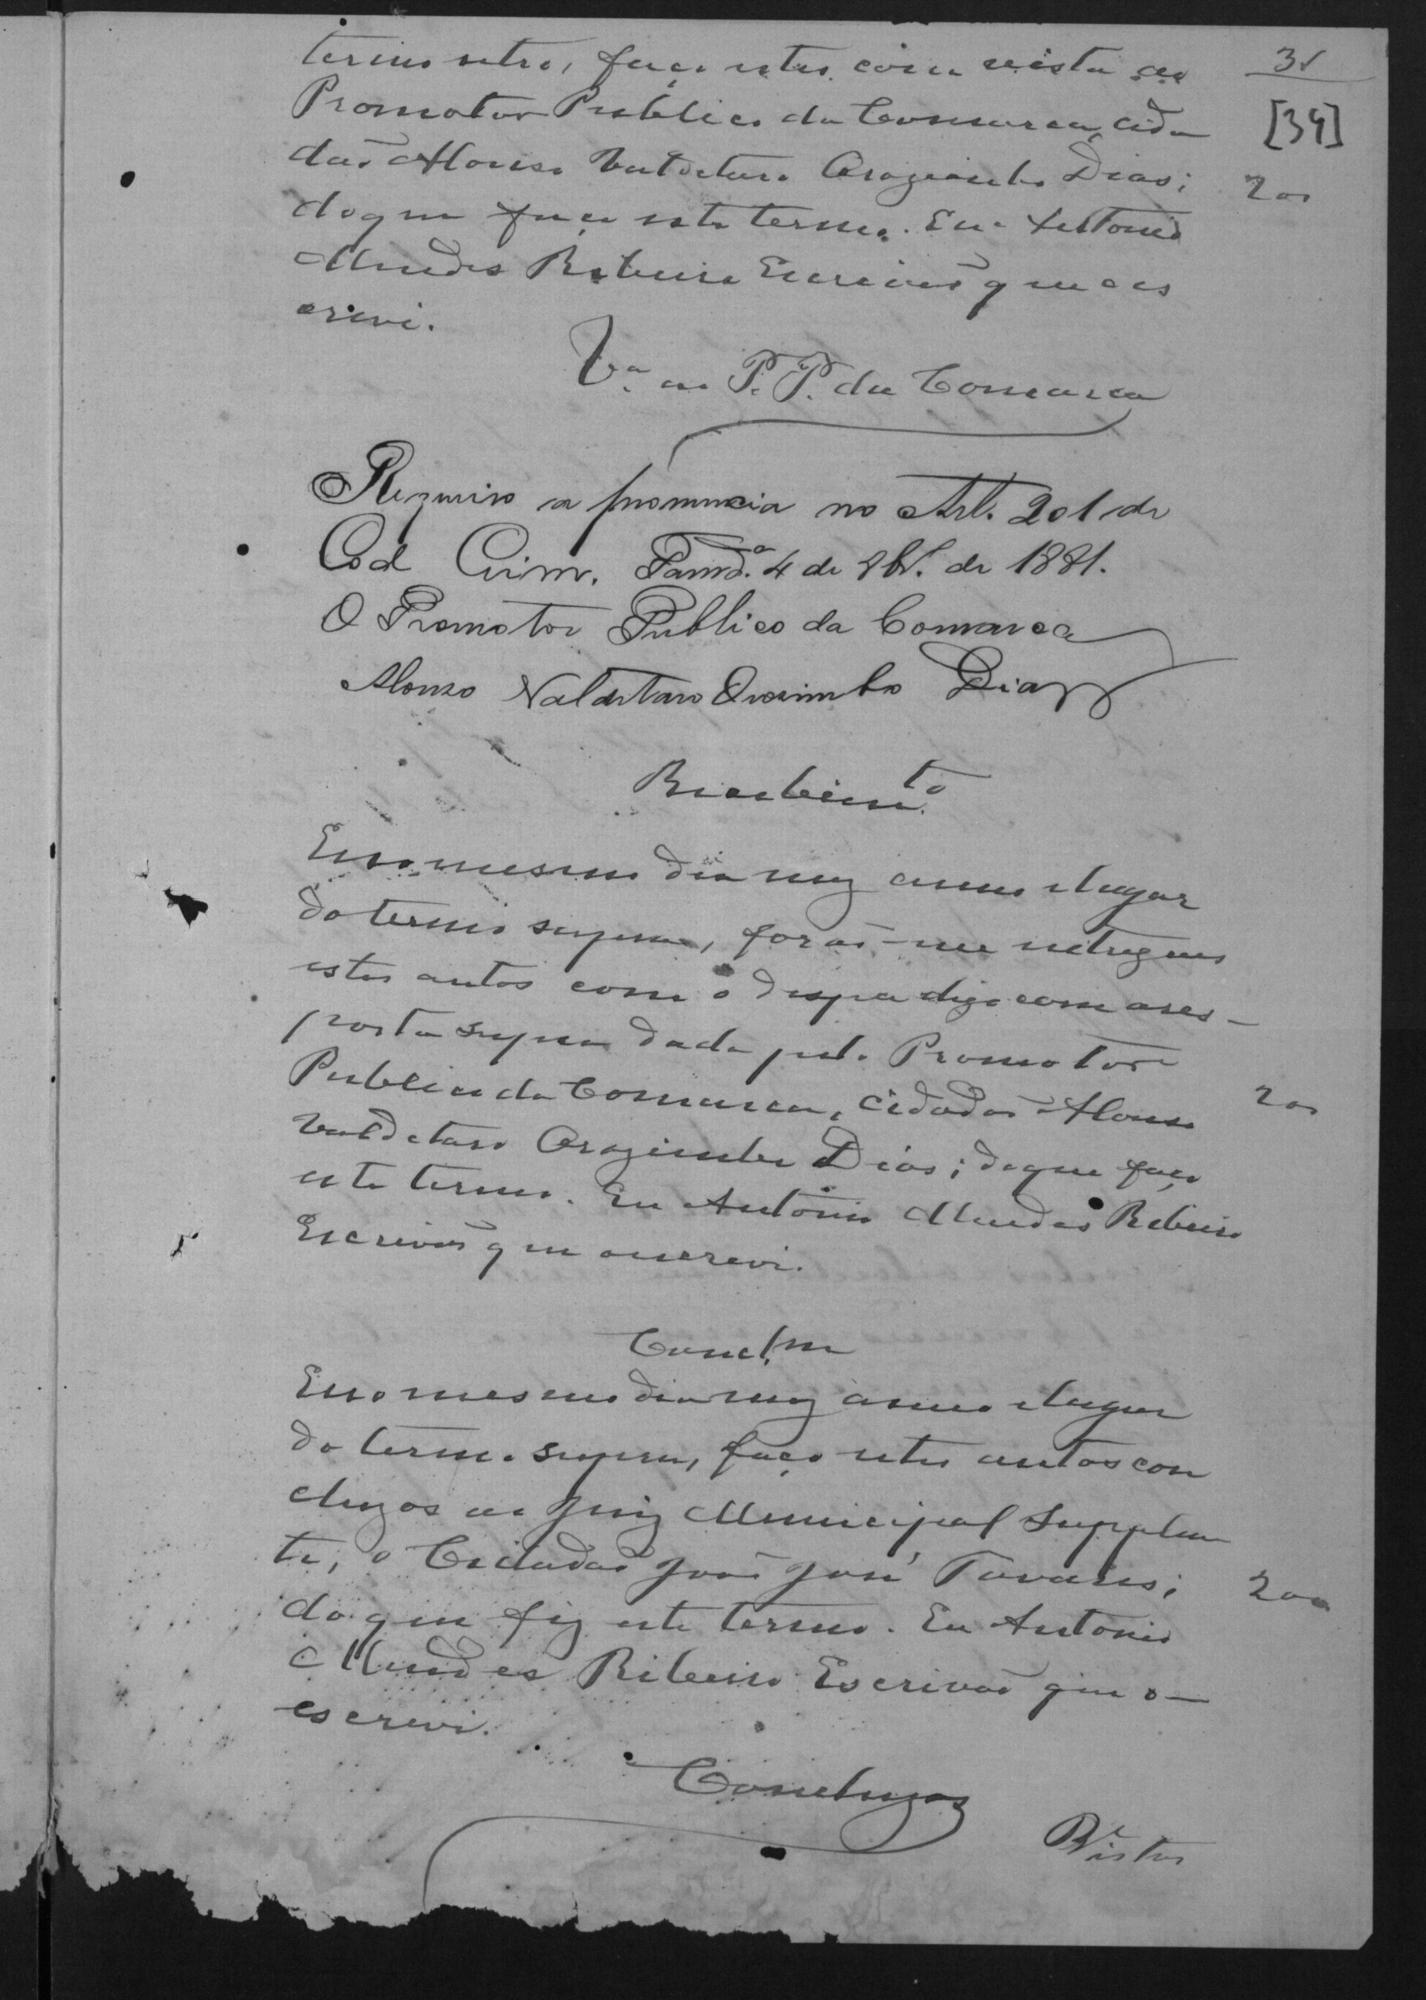 termo retro, faço estes com vista ao
31
[34]
Promotor Publico da Comarca, cida
dão Alonso Valdetaro Orozimbo Dias;
200
do que faço este termo. Eu Antonio
Mendes Ribeiro Escrivão que o es
crevi.
Vª ao P. P. da Comarca
Requeiro a pronuncia no Art. 201 do
Cod Crim. 4 de de 1881.
O Promotor Publico da Comarca
Alonso Valdetaro Orozimbo Dias
Recebimto.
E no mesmo dia mez anno e lugar
do termo supra, forão-me entregues
estes autos com o despa digo com a res-
posta supra dada pelo Promotor
Publico da Comarca, cidadão Alonso
200
Valdetaro Orozimbo Dias; do que faço
este termo. Eu Antonio Mendes Ribeiro
Escrivão que o escrevi.
Conclm
E no mesmo dia mez anno e lugar
do termo supra, faço estes autos con
cluzos ao Juiz Municipal Supplen
te, o Cidadão João José Tavares;
200
do que fiz este termo. Eu Antonio
Mendes Ribeiro Escrivão que o
escrevi.
Concluzos
Vistos